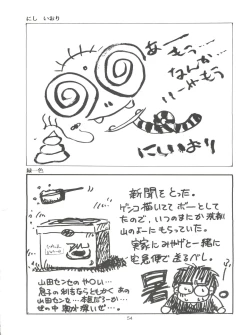 にし いおり
あー もう…
なんか…
いーやもう
にしいおり
緑一色
新聞をとった。
ゲンコ描いててボーとして
たので、いつのまにか洗剤
山のよーにもらっていた。
実家にみやげと一緒に
宅急便で送るべし。
山田センセのやりい…
息子の利吉ならともかく あの
山田センセ…
暑
54